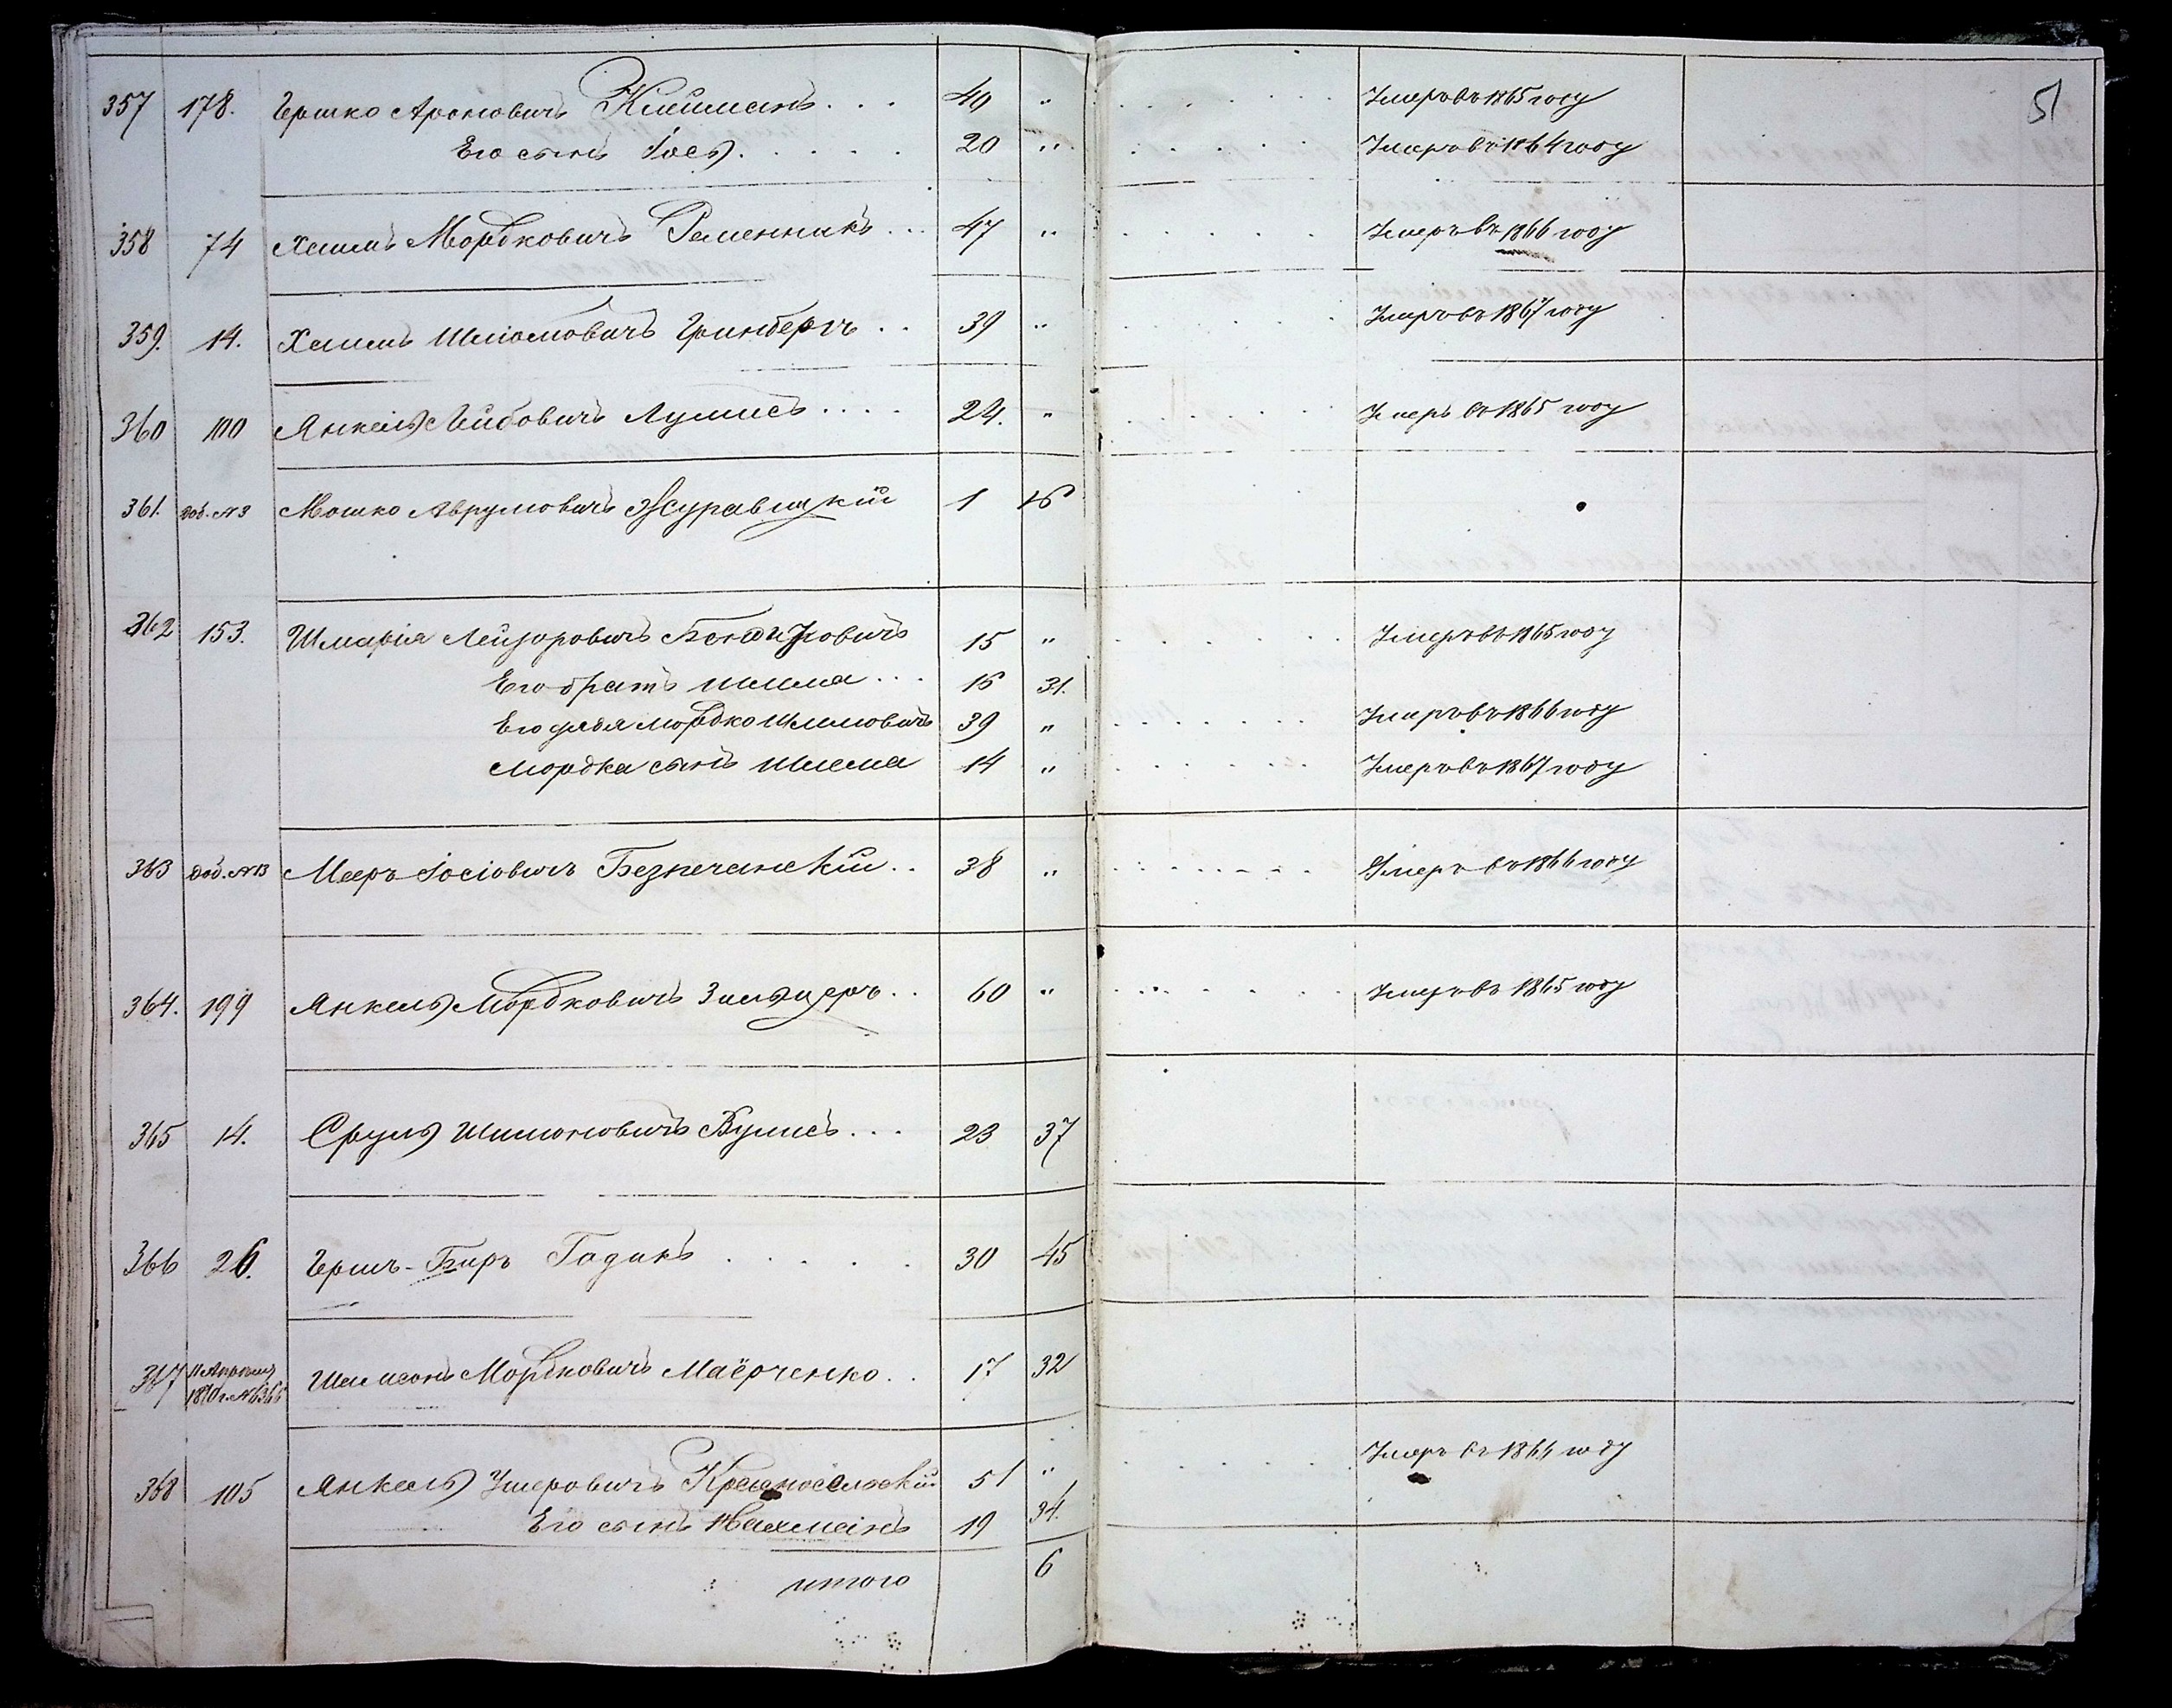 51
357 178. Гершко Ароновичъ Клейманъ . . . 40 " Умеръ въ 1865 году
Его сынъ Іосъ . . . . . 20 " Умеръ въ 1864 году
358 74 Хаимъ Мордковичъ Ременникъ . . 47 " Умеръ въ 1866 году
359. 14. Хаимъ Шліомовичъ Гринбергъ . . 39 " Умеръ въ 1867 году
360 100 Янкель Лейбовичъ Лумисъ . . . . 24. " Умеръ въ 1865 году
361. Доб. №3 Мошко Аврумовичъ Журавицкій 1 16
362 153. Шмарія Лейзоровичъ 15 " Умеръ въ 1865 году
Его братъ Шлема . . . 16 31.
Его дядя Мордко Шлемовичъ 39 " Умеръ въ 1866 году
Мордка сынъ Шлема 14 " Умеръ въ 1867 году
363 Доб. №13 Мееръ Іосіовичъ Безпечанскій . . 38 " Умеръ въ 1866 году
364. 199 Янкель Мордковичъ Зильцеръ . . 60 " Умеръ въ 1865 году
365 14. Сруль Шимоновичъ Кумисъ . . . 23 37
366 26. Гершъ-Беръ Гадикъ . . . . . 30 45
367 11 Апрѣля Шимсонъ Мордковичъ Маёрченко . . 17 32
1870 г. №6366
368 105 Янкель Умеровичъ Красносельскій 51 " Умеръ въ 1864 году
Его сынъ Нахманъ 19 34.
итого 6